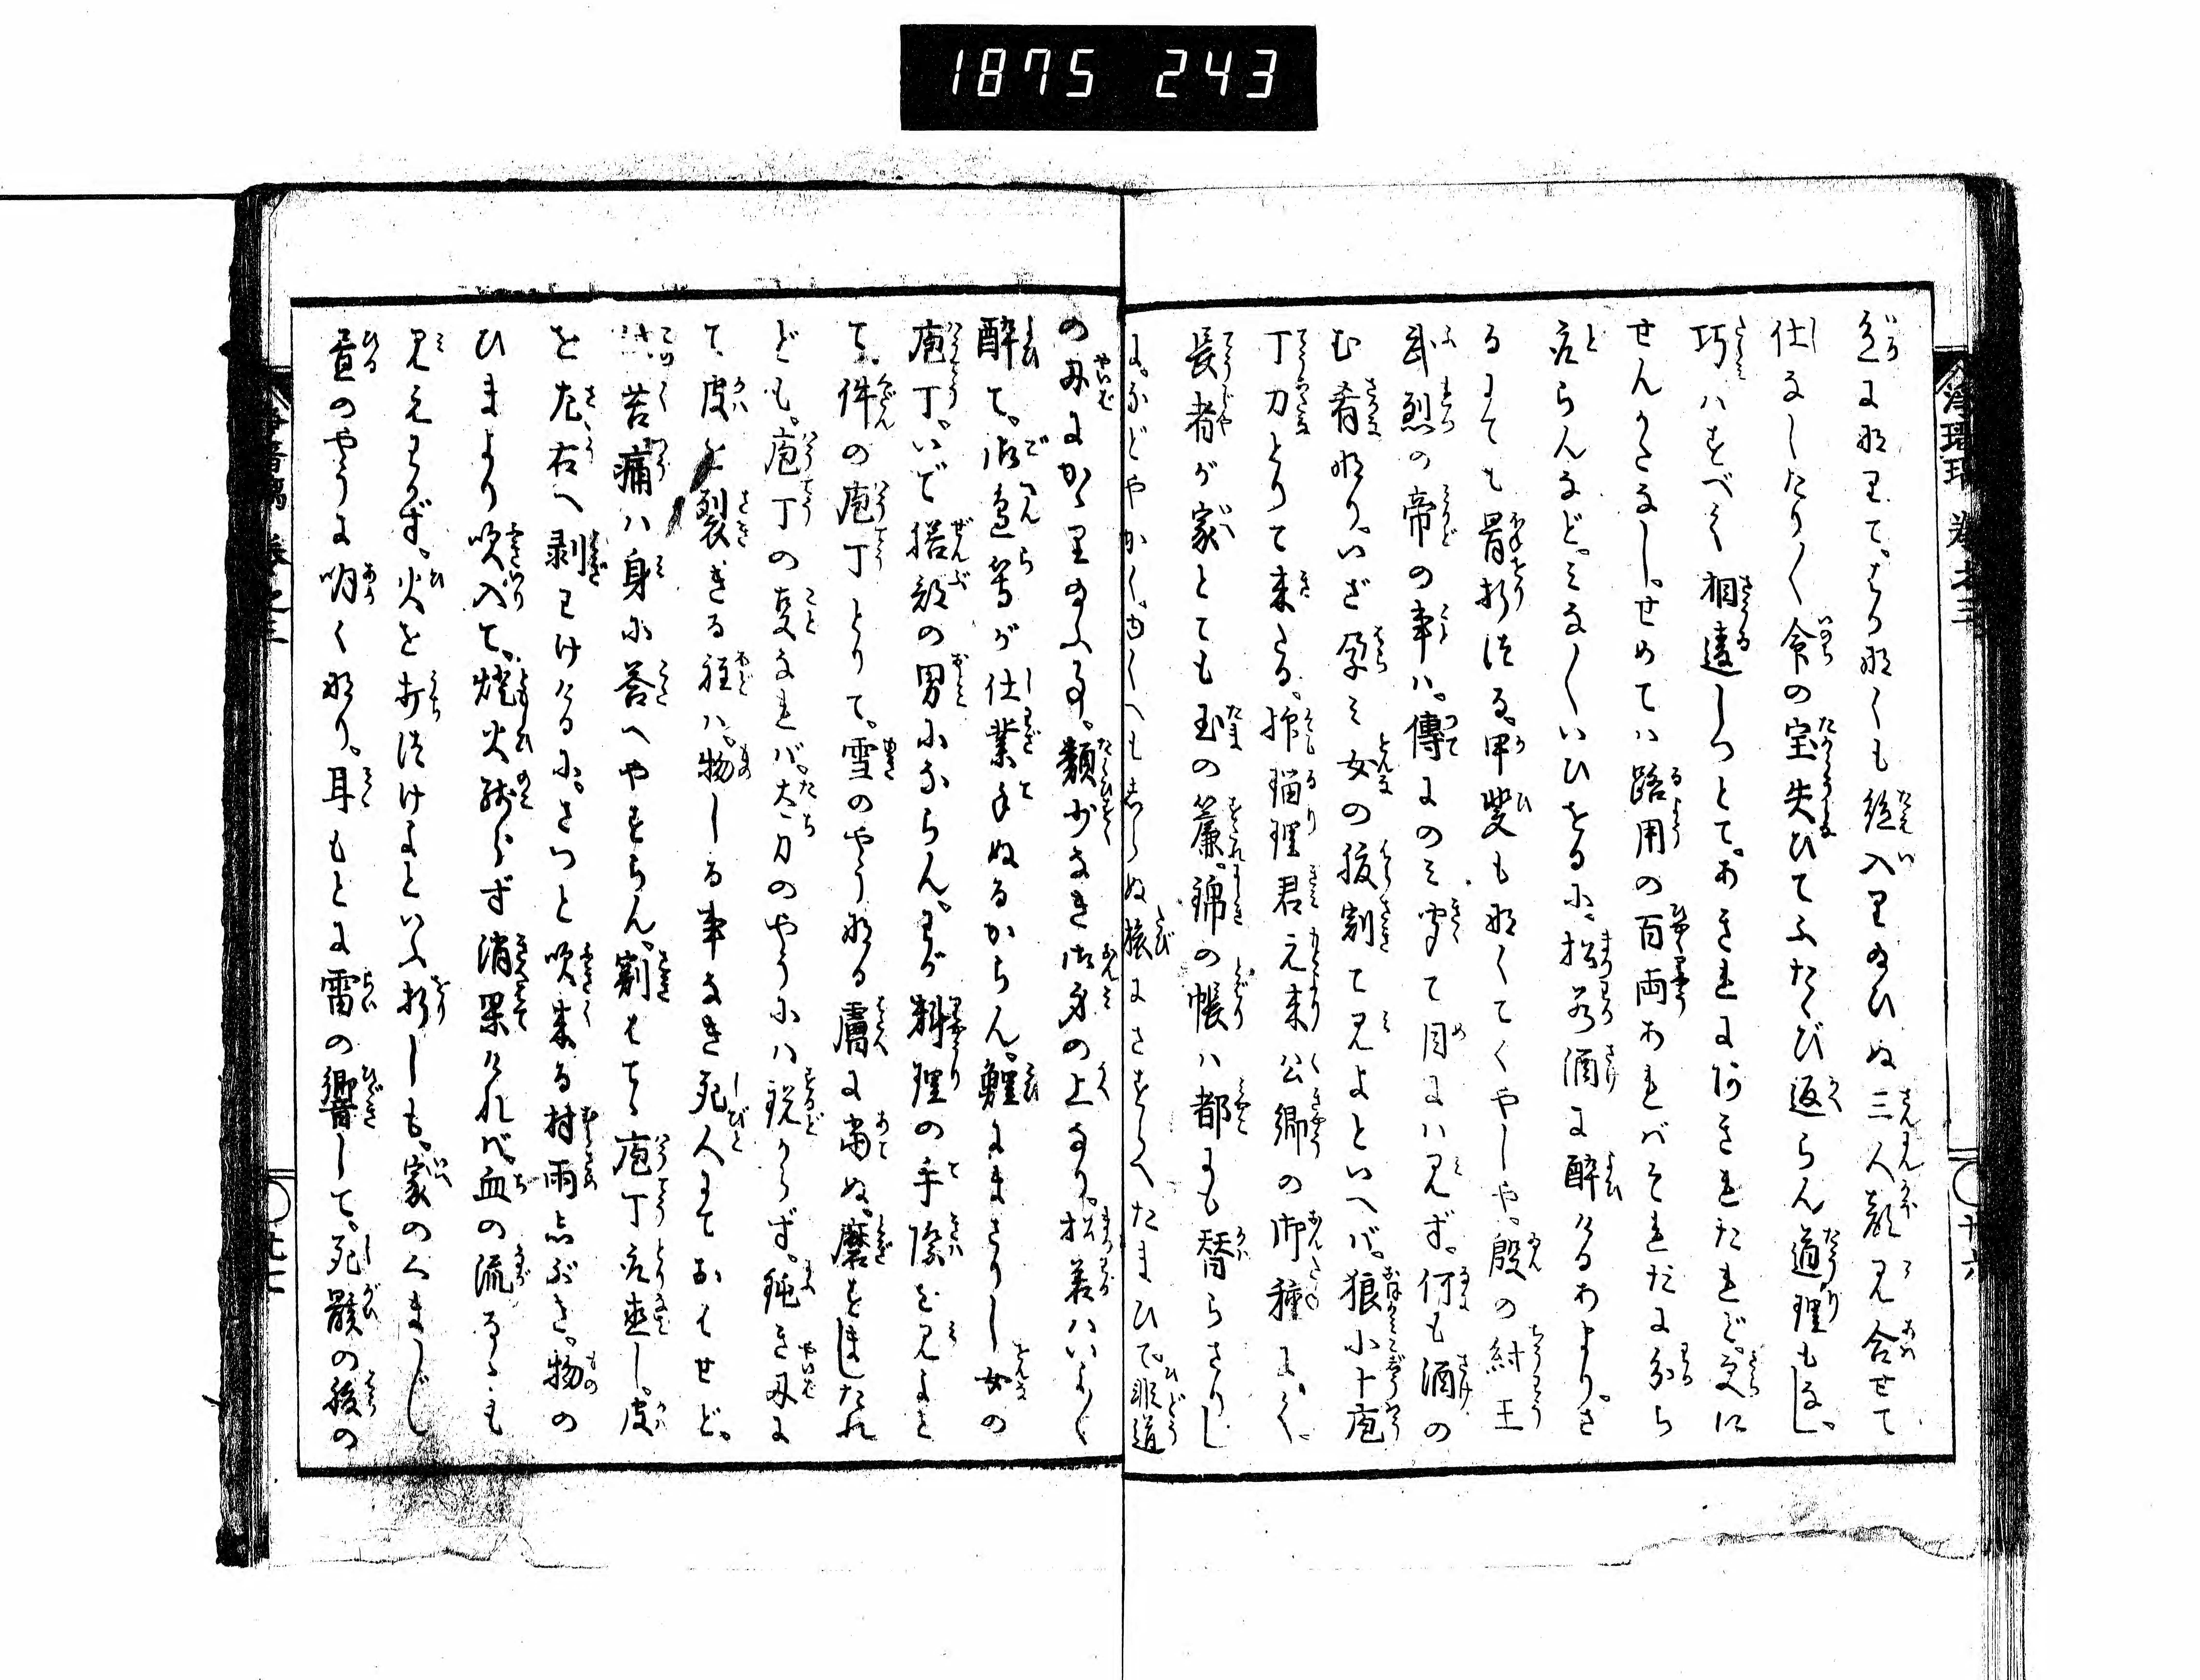 1875 243
色に那りて。はり那くも絶入り給ひぬ三人顔見合せて
仕なしたり〳〵命の宝失ひてふたゝび返らん道理もなし。
巧ハすべて相違しつとて。あきれにあきれたれど。更に
せんかたなし。せめてハ路用の百両あれバそれだに分ち
取らんなど。みな〳〵いひをるに松若酒に酔けるあまり。さ
るにても骨折つる。甲斐も那くてくやしや。殷の紂王
武烈の帝の事ハ。傳にのミ聞て目にハ見ず。何も酒の
む肴那り。いざ孕ミ女の腹割て見よといへバ。狼小十庖
丁刀とりて来たる。抑瑠理君元来公卿の御種にて。
長者が家とても玉の簾。錦の帳ハ都にも替らざりし
に。などやかく。ゆくへもしらぬ旅にさすらへたまひて。非道
の刃にかゝり給ふ事。類少なき御身の上なり。松若ハいよ〳〵
酔て。御邉等が仕業手ぬるからん。鯉にまさりし女の
庖丁。いで膳部の男にならん。わが料理の手際を見よと
て。件の庖丁とりて。雪のやう那る膚に当ぬ。磨すましたれ
ども。庖丁の事なれバ。太刀のやうにハ鋭からず。鈍き刃に
て皮を裂ぎる程ハ。物しる事なき死人にておはせど。
苦痛ハ身に答へやすらん。割はてゝ庖丁取直し。皮
を左右へ剥わけけるに。さつと吹来る村雨しぶき。物の
ひまより吹入て。焼火残らず消果けれバ。血の流るゝも
見えわかず。火を打つけよといふ折しも。家のくまぐまし
昼のやうに明く那り。耳もとに雷の響して。死骸の腹の
浄瑠璃 巻之三
廿六